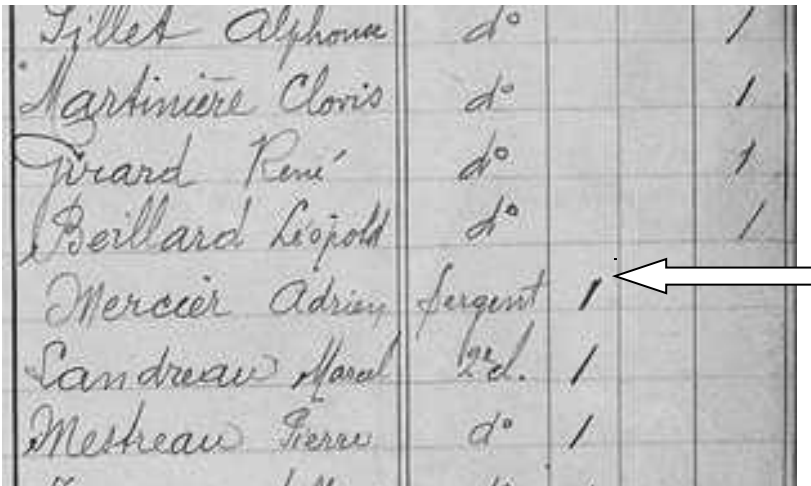 Tillet Alphonse d° 1
Martinière Clovis d° 1
Girard René d° 1
Beillard Léopold d° 1
Mercier Adrien Sergent 1
Landreau Marcel 2e cl. 1
Mestreau Pierre d° 1